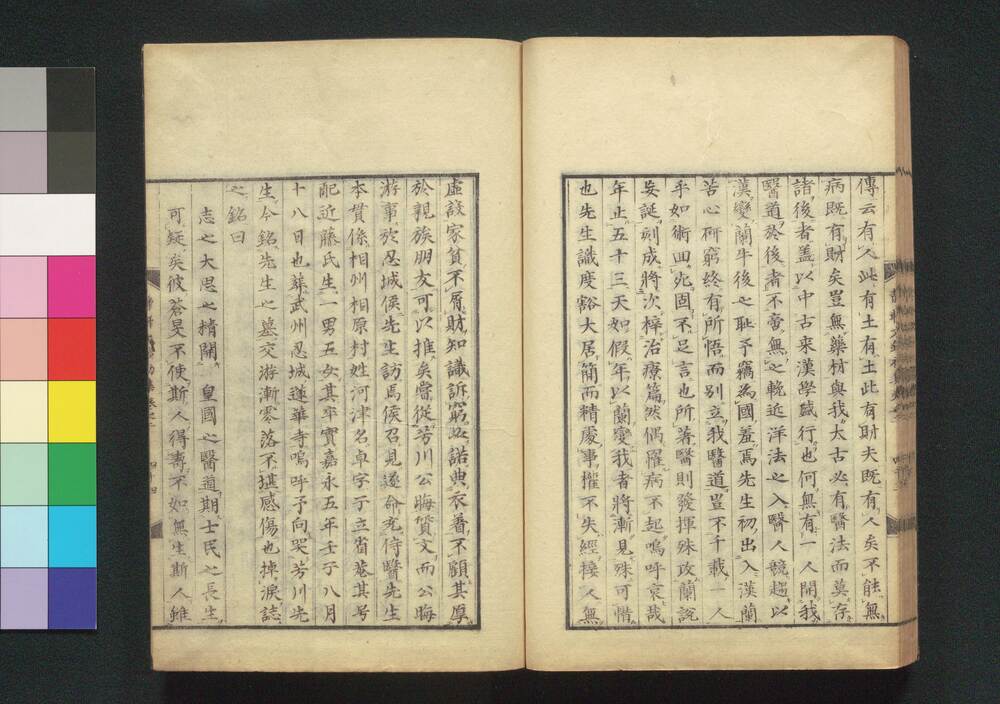 傳云有人此有土有土此有財夫既有人矣不能無
病既有財矣豈無藥材與我大古必有醫法而莫存
諸後者蓋以中古來漢學盛行也何無有一人開我
醫道於後者不啻無之輓近洋法之入醫人競趨以
漢變蘭牛後之恥予竊為國羞焉先生初出入漢蘭
苦心研窮終有所悟而別立我醫道豈不千載一人
乎如術回死固不足言也所著醫則發揮殊攻蘭說
妄誕刻成將次梓治療篇然偶罹病不起嗚呼哀哉
年止五十三天如假年以蘭變我者將漸見殊可惜
也先生識度豁大居簡而精處事權不失經接人無
虛設家貧不屑財知識訴窮必諾典衣著不顧其厚
於親族朋友可以推矣嘗從芳川公晦贄文而公晦
游事於忍城侯先生訪焉侯召見遂命充侍醫先生
本貫係相州相原村姓河津名卓字子立省菴其号
配近藤氏生一男五女其卒實嘉永五年壬子八月
十八日也葬武州忍城蓮華寺嗚呼予向哭芳川先
生今銘先生之墓交游漸零落不堪感傷也揀淚誌
之銘曰
志之大思之精開皇國之醫道期士民之長生
可疑矣彼蒼旻不使斯人得壽不如無生斯人雖